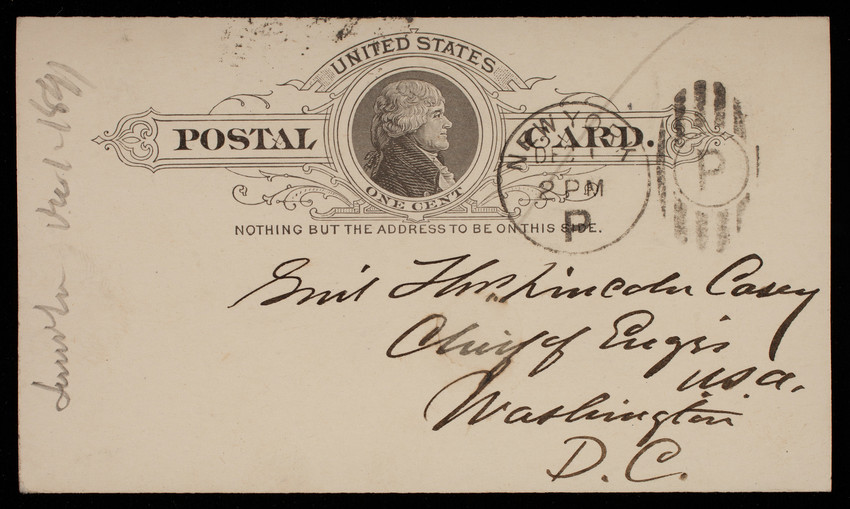 UNITED STATES
POSTAL CARD.
ONE CENT
NOTHING BUT THE ADDRESS TO BE ON THIS SIDE.
NEW YORK
DE 1
2 PM
P
P
Genl Thos Lincoln Casey
Chief of Engrs
U.S.A.
Washington
D.C.
1891